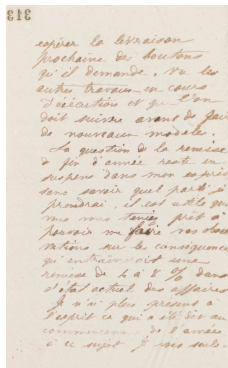 313
espérer la livraison
prochaine des boutons
qu'il demande, vu les
autres travaux en cours
d'exécution et que l'on
doit suivre avant de faire
de nouveaux modèles.
La question de la remise
de fin d'année reste en
suspens dans mon esprit
sans savoir quel parti je
prendrai, il est utile que
vous vous teniez prêt à
pouvoir me faire vos obser
vations sur les conséquences
qu'entrainerait une
remise de 4 à 8 % dans
l'état actuel des affaires
Je n'ai plus présent à
l'esprit ce qui a été dit au
commencement de l'année
à ce sujet Je vous